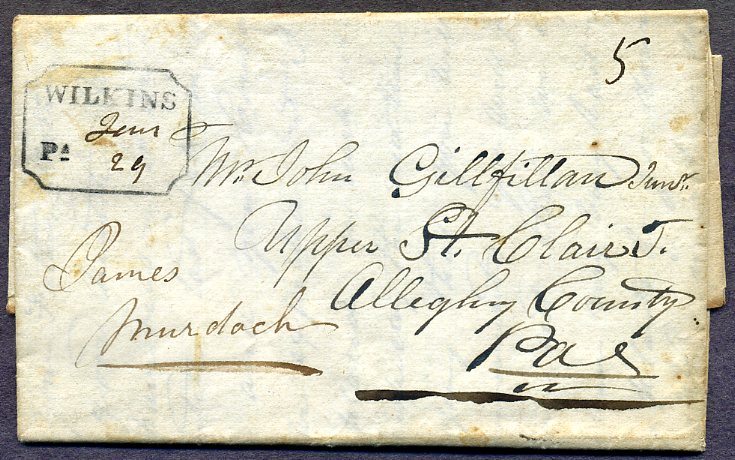 5
WILKINS
Jan
Pᴬ 29
Mr. John Gillfillan Junr.
Upper St. Clair T.
Alleghny County
Pae
James
Murdoch